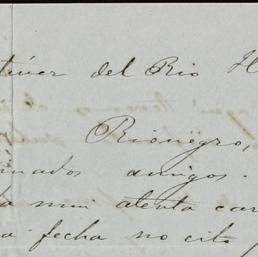 del Rio H
Rionegro,
mados amigos.
a mui atenta car
a fecha no cito